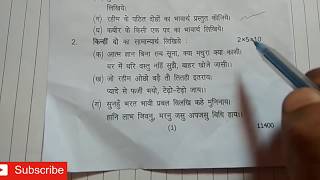 लिखिये।
(ग) रहीम के पठित दोहों का भावार्थ प्रस्तुत कीजिये।
(घ) कबीर के किसी एक पद का भावार्थ लिखिये।
2. किन्हीं दो का सामान्यार्थ लिखिये 2×5=10
(क) आतम ज्ञान बिना सब सूना, क्या मथुरा क्या कासी।
घर में वरि वस्तु नहिं सूझै, बाहर खोजे जासी।।
(ख) जो रहीम ओछो बढ़ै तौ तितही इतराय।
प्यादे से फर्जी भयो, टेढ़ो-टेढ़ो जाय।।
(ग) सुनहुँ भरत भावी प्रबल विलखि कहे मुनिनाथ।
हानि लाभ जिवनु, मरनु जसु अपजसु बिधि हाथ।।
(1) 11400
Subscribe